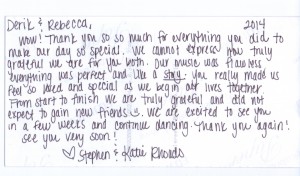 Derik & Rebecca, 2014
Wow! Thank you so so much for everything you did to
make our day so special. We cannot express how truly
grateful we are for you both. Our music was flawless
everything was perfect and like a story. You really made us
feel so loved and special as we begin our lives together.
From start to finish we are truly grateful and did not
expect to gain new friends ☺. We are excited to see you
in a few weeks and continue dancing. Thank you again!
See you very soon!
♡ Stephen & Katie Rhoads